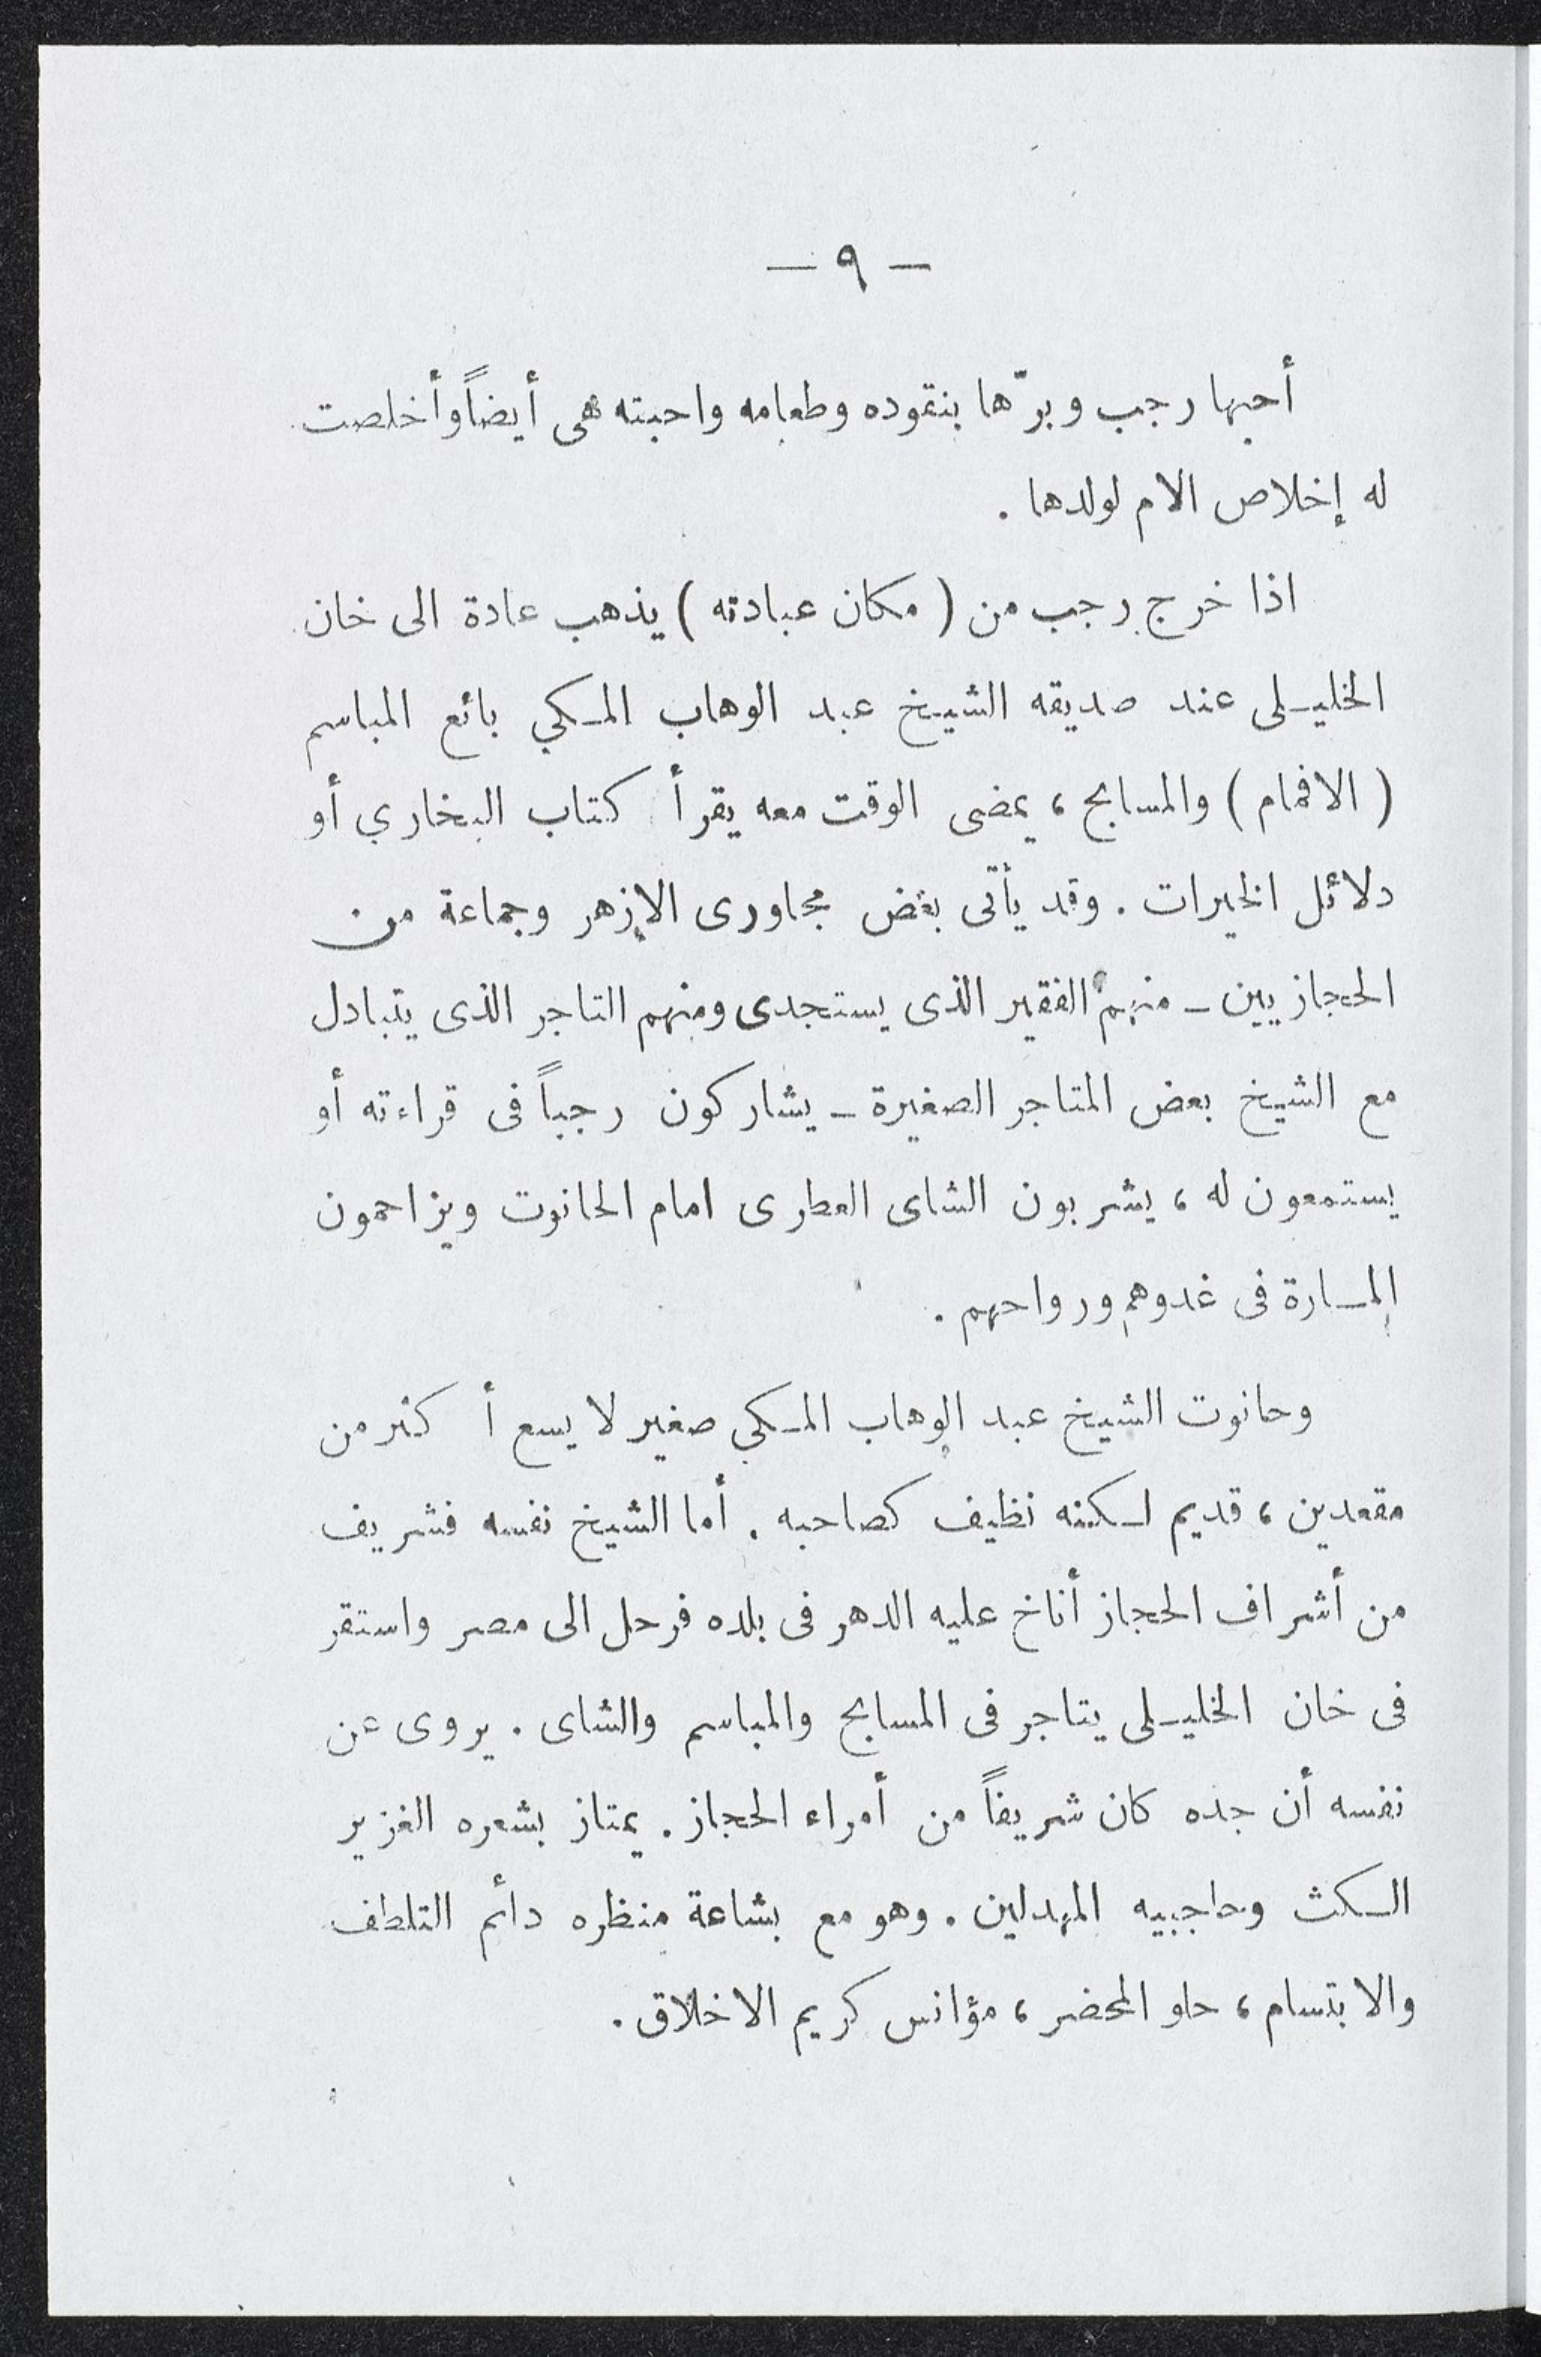 — ٩ —
أحبها رجب وبرّها بنقوده وطعامه واحبته هى أيضاً وأخلصت
له إخلاص الام لولدها .
اذا خرج رجب من ( مكان عبادته ) يذهب عادة الى خان
الخليلى عند صديقه الشيخ عبد الوهاب المكي بائع المباسم
( الافمام ) والمسابح ، يمضى الوقت معه يقرأ كتاب البخاري أو
دلائل الخيرات . وقد يأتى بعض مجاورى الازهر وجماعة من
الحجازيين – منهم الفقير الذى يستجدى ومنهم التاجر الذى يتبادل
مع الشيخ بعض المتاجر الصغيرة – يشاركون رجباً فى قراءته أو
يستمعون له ، يشربون الشاى العطارى امام الحانوت ويزاحمون
المارة فى غدوهم ورواحهم .
وحانوت الشيخ عبد الوهاب المكي صغير لا يسع أكثر من
مقعدين ، قديم لكنه نظيف كصاحبه . أما الشيخ نفسه فشريف
من أشراف الحجاز أناخ عليه الدهر فى بلده فرحل الى مصر واستقر
فى خان الخليلى يتاجر فى المسابح والمباسم والشاى . يروى عن
نفسه أن جده كان شريفاً من أمراء الحجاز . يمتاز بشعره الغزير
الكث وحاجبيه المهدلين . وهو مع بشاعة منظره دائم التلطف
والابتسام ، حلو المحضر ، مؤانس كريم الاخلاق .